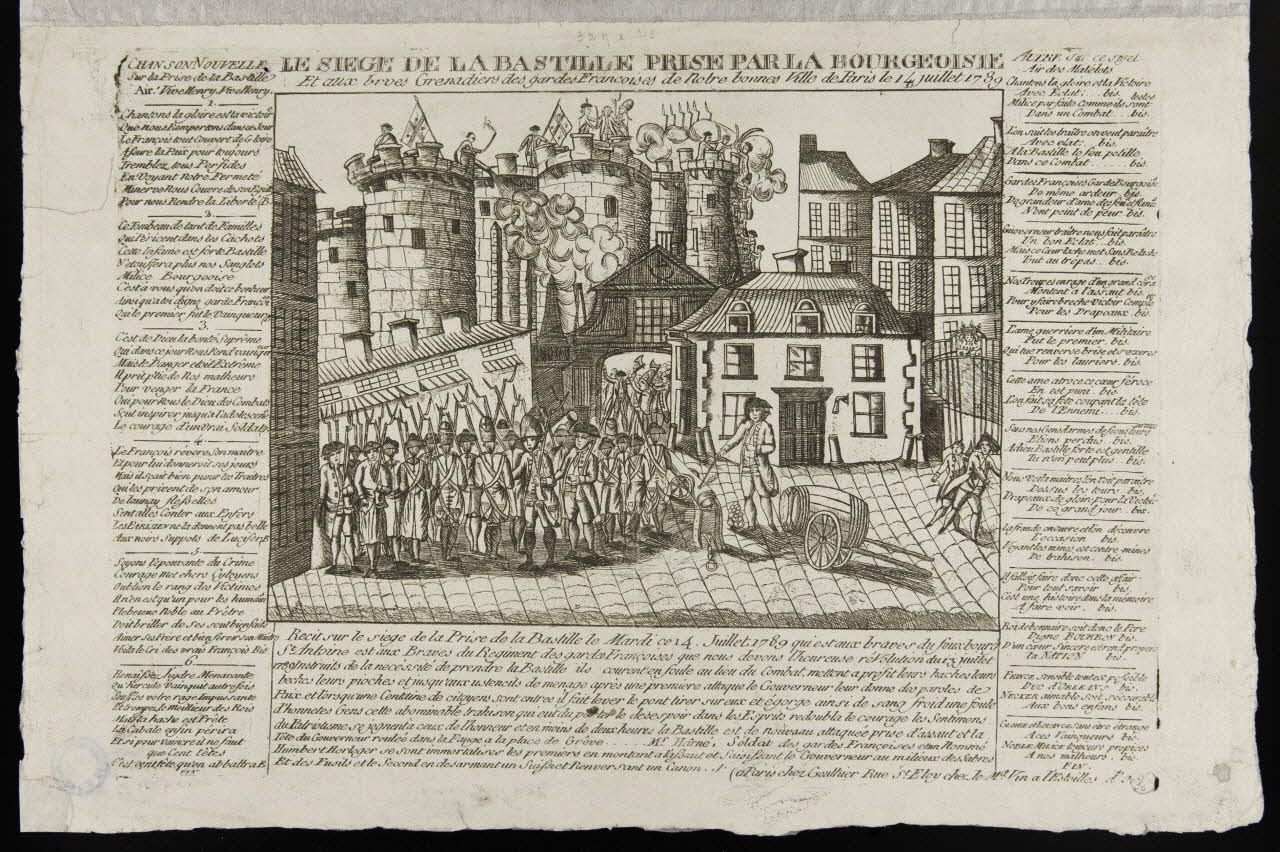 CHANSON NOUVELLE
Sur la Prise de la Bastille
Air. Vive Henry, Vive Henry.
1
Chantons la gloire est la victoir
Que nous Remportons dans ce Jour
Le François tout Couvert de Gloire
Assure la Paix pour toujours
Tremblez, tous Perfides
En Voyant Notre Fermeté
Minerve Nous Couvre de son Egide
Pour nous Rendre la Liberté B.
2
Ce Tombeau de tant de Familles
Qui Pericent dans les Cachots
Cette Infame est forte Bastille
N'etouffera plus nos Sanglots
Milice Bourgeoise
C'est a vous qu'on doit ce bonheur
Ainsi qu'a toi digne garde François
Qui le premier fut le Vainqueur
3
C'est de Dieu la bonté Suprême
Qui dans ce jour Nous Rend vainqueur
Mais le Danger etoit Extrême
Il prit pitié de Nos malheurs
Pour venger la France
Oui pour Nous le Dieu des Combats
Sçut inspirer jusqu'a l'adolescence
Le courage d'un vrai Soldat
4
Le François revere son maitre
Et pour lui donneroit ses jours
Mais il sçait bien punir les traitres
Qui les privent de son amour
De launay Flesselles
Sont alles Conter aux Enfers
Les PARISIEN ne la donnent pas belle
Aux noirs Suppots de Lucifer B
5
Soyons l'epouvante du Crime
Courage Mes chers Cytoyens
Oublion le rang des Victimes
Il n'en est qu'un pour les humain
Plebeiens Noble au Prêtre
Doit briller de ses seul bienfaits
Aimer Ses Frere et bien servir son Maitre
Voila le Cri des vrais François Bis
6
Renaissez hydre Menacante
Qu'hercule Vainquit autrefois
Souffle votre rage Impuissante
Et trompe le meilleur des Rois
Mais la hache est Prête
La Cabale enfin perira
Et si pour vaincre il ne faut
que Cent têtes
C'est cent tête qu'on abbattra B
FIN
LE SIEGE DE LA BASTILLE PRISE PAR LA BOURGEOISIE
Et aux brves Grenadiers des gardes Francoises de Notre bonnes Ville de Paris le 14 juillet 1789
Recit sur le siege de la Prise de la Bastille le Mardi ce 14. Juillet 1789 qui est aux braves du fouxbourg
St. Antoine est aux Braves du Regiment des garda Françoises que nous devons l'heureuse révolution du 13 juillet
1789 Instruits de la necésité de prendre la Bastille ils courent en foule au lieu du Combat, mettent a profit leurs haches leurs
beches leurs pioches et jusqu'aux ustencils de menage après une première attaque le Gouverneur leur donne des paroles de
Paix et lorsqu'une Centaine de citoyens sont entres il fait lever le pont tirer sur eux et égorge ainsi de sang froid une foule
d'honnetes Gens cette abominable trahison qui eut du porter le desespoir dans les Esprits redoubla le courage les Sentimens
du Patriotisme se joignent a ceux de l'honneur et en moins de deux heures la Bastille est de nouveau attaquée prise d'assaut et la
Tête du Gouverneur roulée dans la Fange a la place de Grêve. Mr. Harné, Soldat des gardes Françoises et un Nommé
Humbert Horloger se sont immortalisés les premiers en montant a l'assaut et Saisissant le Gouverneur au milieu des Sabres
Et des Fusils et le Second en desarmant un Suisse et Renversant un Canon
(a Paris chez Goulhier Rue St. Eloy chez le Md. Vin a l'Estoilles
AUTRE Sur ce sujet
Air des Matelots
Chantons la gloire et la Victoire
Avec Eclat. bis.
Milice parfaite Comme ils sont
Dans un Combat . bis
L'on suit les traître on veut paraitre
Avec elat. bis.
A la Bastille le feu petille
Dans ce Combat . bis.
Gardes Françoises Garde Bourgoise
De même ardeur bis.
De grandeur d'ame
N'ont point de peur bis.
Gouverneur traitre nous fait paraître
Un bon Eclat.... bis.
Mais ce Cœur lache met sans Relache
Tout au trépas.. bis.
Nos Troupes en rage d'un grand
Montent a l'assaut bis.
Pour y faire breche Victoir
Pour les Drapeaux bis.
L'ame guerriere d'un Militaire
Fut le premier bis.
qui tue renverse brise
Pour les lauriers. bis.
Cette ame atroce ce cœur féroce
En est puni bis.
L'on fait sa fête coupant la tête
De l'Ennemi.... bis.
Sans nos Gendarmes
Etions perdus . bis.
Adieu Bastille forte est gentille
Tu n'en peut plus. bis.
Nous Voila maitres, l'on Voit paraitre
Dessus les tours bis.
Drapeaux de gloire pour la
De ce grand jour. bis.
la fraude en ouvre et l'on découvre
L'occasion bis.
Voyant les mines est contre mines
De trahison bis.
Il falloit faire donc cette affair
Pour tout savoir bis.
C'est une histoire dans la mémoire
A faire voir . bis.
Roi debonnaire soit donc le Pere
Digne BOURBON bis.
D'un cœur Sincere
ta NATION bis.
Duc d'ORLEANS bis.
NECKER aimable, soit
Aux bons enfans bis.
A ces Vainqueurs bis.
NOBLE MILICE toujours propices
A nos malheurs . bis.
FIN.